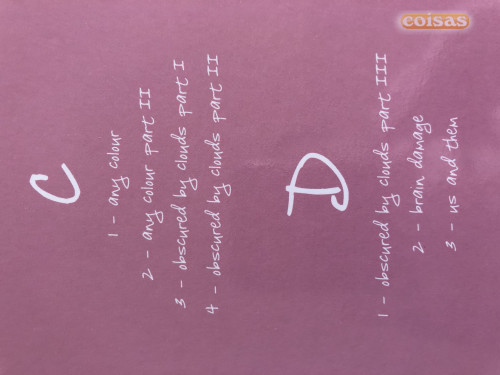 coisas
C
1 - any colour
2 - any colour part II
3 - obscured by clouds part I
4 - obscured by clouds part II
D
1 - obscured by clouds part III
2 - brain damage
3 - us and them